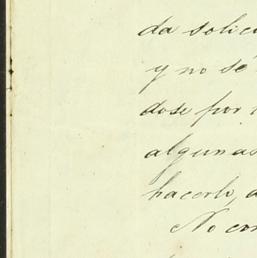 da solici
y no sé
dose por
algunas
hacerlo, a
No con